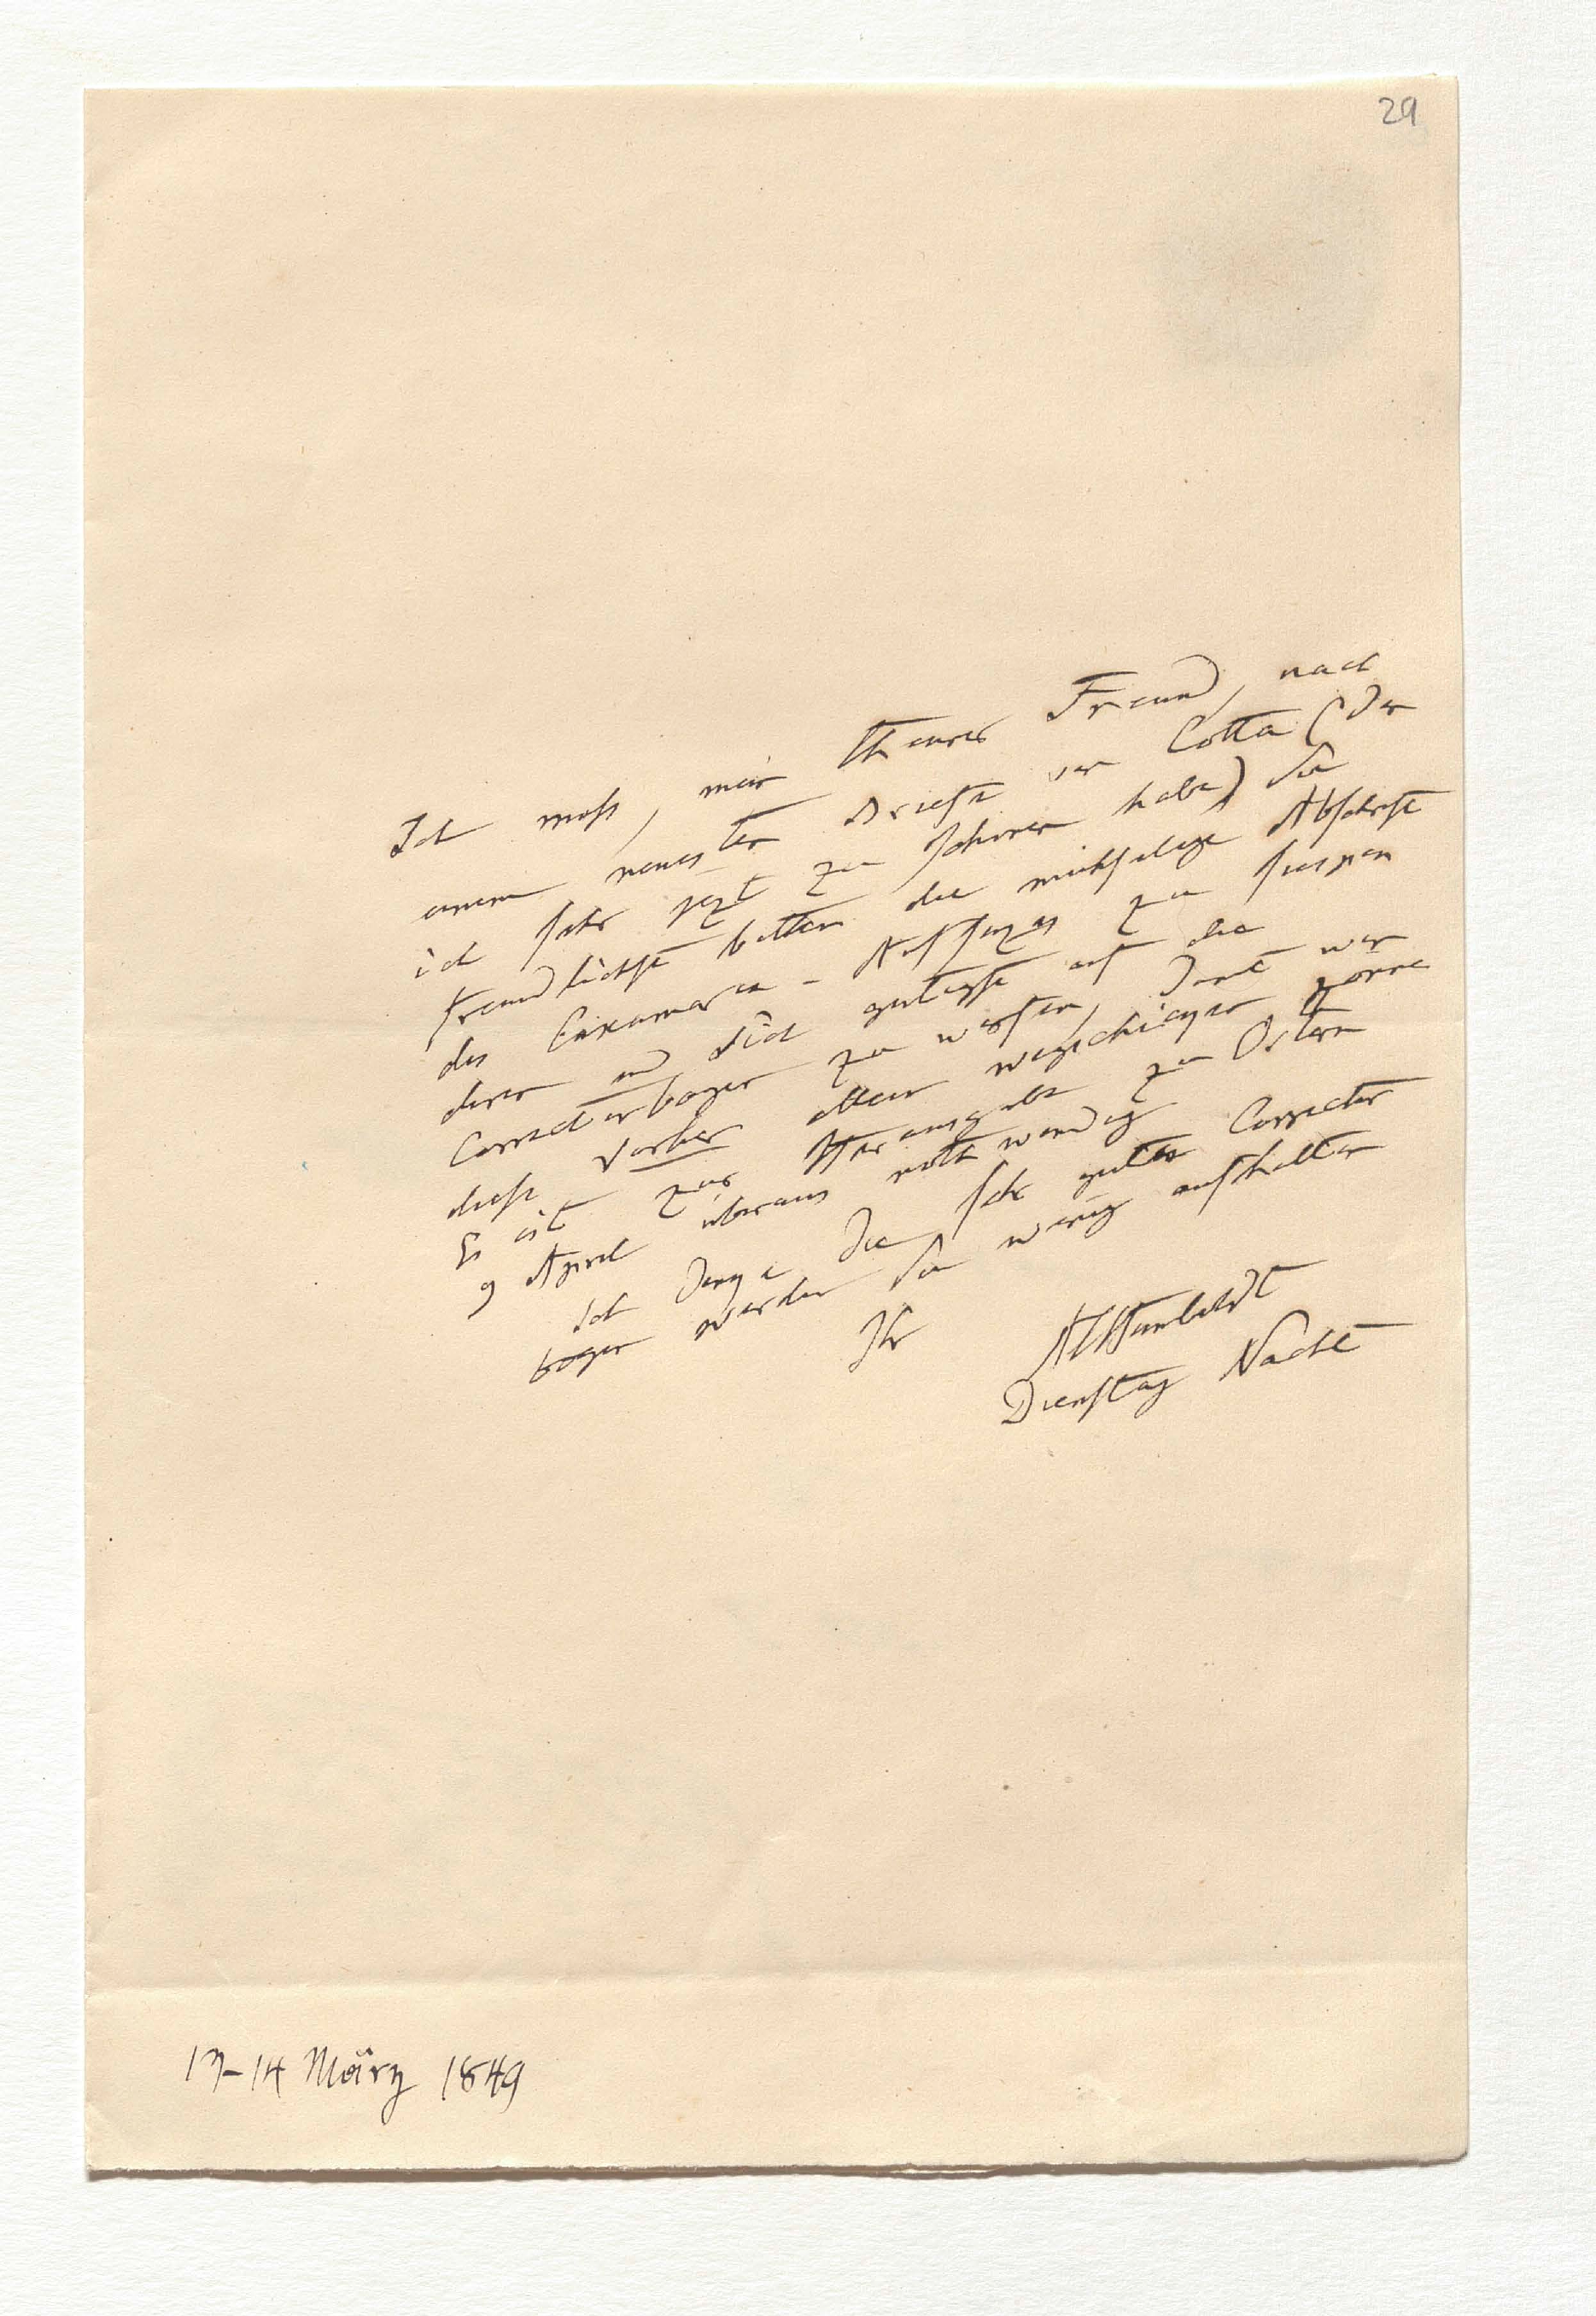 29
Ich muß, mein theurer Freund, nach
einem neuesten Briefe von Cotta (den
ich sehr jezt zu schonen habe) Sie
freundlichst bitten die mühselige Abschrift
des Caxamarca-Aufsazes zu
dieser und sich gütigst auf die
Correcturbogen zu werfen, damit wir
diese vorher allein wegschicken können
Es ist zur Herausgabe zu Ostern
9 April überaus nothwendig
Ich denke die sehr guten Correctur
bogen werden Sie wenig aufhalten
Ihr
AlHumboldt
Dienstag Nacht
13-14 März 1849